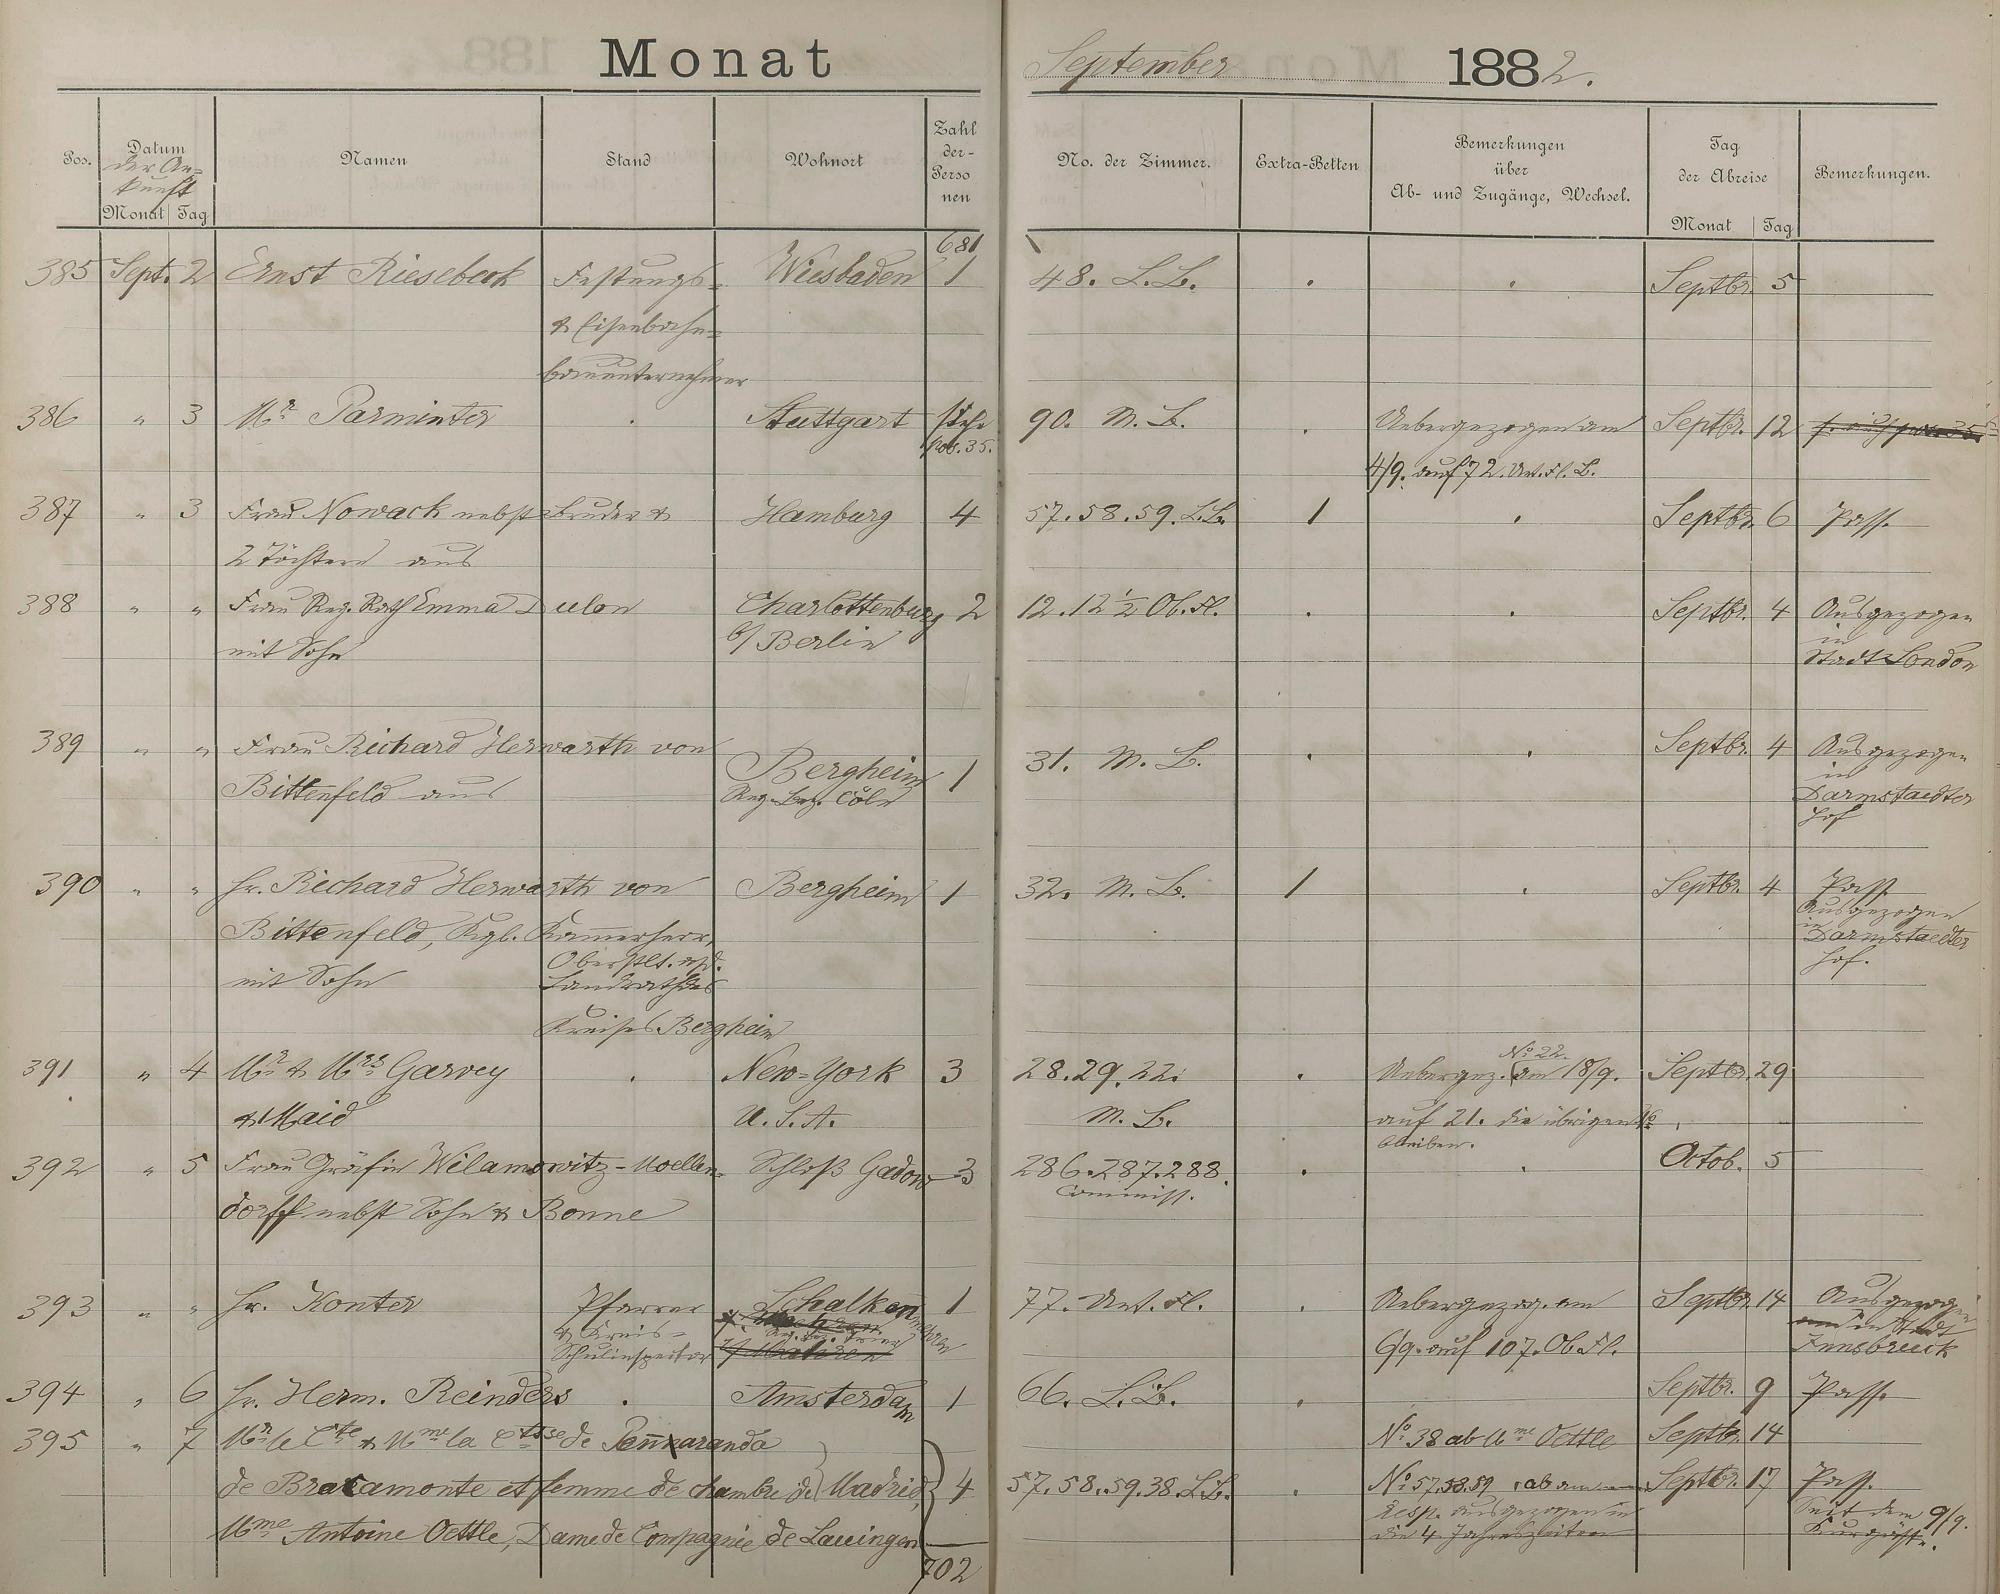 Monat September 1882.
Pos. Datum der Ankunft Namen Stand Wohnort Zahl der Personen No. der Zimmer. Extra-Betten Bemerkungen über Ab- und Zugänge, Wechsel. Tag der Abreise Bemerkungen.
Monat Tag Monat Tag
681
385 Sept. 2 Ernst Riesebeck Festungs- Wiesbaden 1 48. L.B. Septbr. 5
& Eisenbahn-
bauunternehmer
386 " 3 Mr. Parminter Stuttgart siehe 90. M. B. Uebergezogen am Septbr. 12
Pos. 35. 4/9. auf 72. Unt. Fl. B.
387 " 3 Frau Nowack nebst Bruder & Hamburg 4 57. 58. 59. L.B. 1 Septbr. 6 Pass.
2 Töchtern aus
388 " " Frau Reg. Rath Emma Dulon Charlottenburg 2 12. 12 1/2 Ob. Fl. Septbr. 4 Ausgezogen
mit Sohn b/ Berlin in
Stadt London
389 " " Frau Richard Herwarth von Bergheim 1 31. M. B. Septbr. 4 Ausgezogen
Bittenfeld aus Reg. Bez. Cöln in
Darmstaedter
Hof
390 " " Hr. Richard Herwarth von Bergheim 1 32. M. B. 1 Septbr. 4 Pass.
Bittenfeld, Kgl. Kammerherr, Ausgezogen
in Darmstaedter
mit Sohn Oberstlt. Hof.
Landrath des
Kreises Bergheim
391 " 4 Mr. & Mrs. Garvey New-York 3 28. 29. 22. Uebergez. No. 22. am 18/9. Septbr. 29
& Maid U. S. A. M. B. auf 21. die übrigen No.
bleiben.
392 " 5 Frau Gräfin Wilamowitz-Moellen- Schloß Gadow 3 286. 287. 288. Octob. 5
dorff nebst Sohn & Bonne Commiss.
393 " " Hr. Konter Pfarrer Schalken 1 77. Unt. Fl. Uebergezog. am Septbr. 14 Ausgezogen
& Kreis- 6/9. auf 107. Ob. Fl. in Stadt
Schulinspector Innsbruck
394 " 6 Hr. Herm. Reinders Amsterdam 1 66. L. B. Septbr. 9 Pass.
395 " 7 Mr. le Cte & Mme la Ctsse de Pennaranda No. 38 ab Mme Oettle Septbr. 14
de Bracamonte et femme de chambre de Madrid, 4 57. 58. 59. 38. L.B. No. 57. 58. 59 ab Septbr. 17 Pass.
Mme Antoine Oettle, Dame de Compagnie de Lauingen resp. ausgezogen in Seit dem 9/9.
die 4 Jahreszeiten Kurgäste.
702